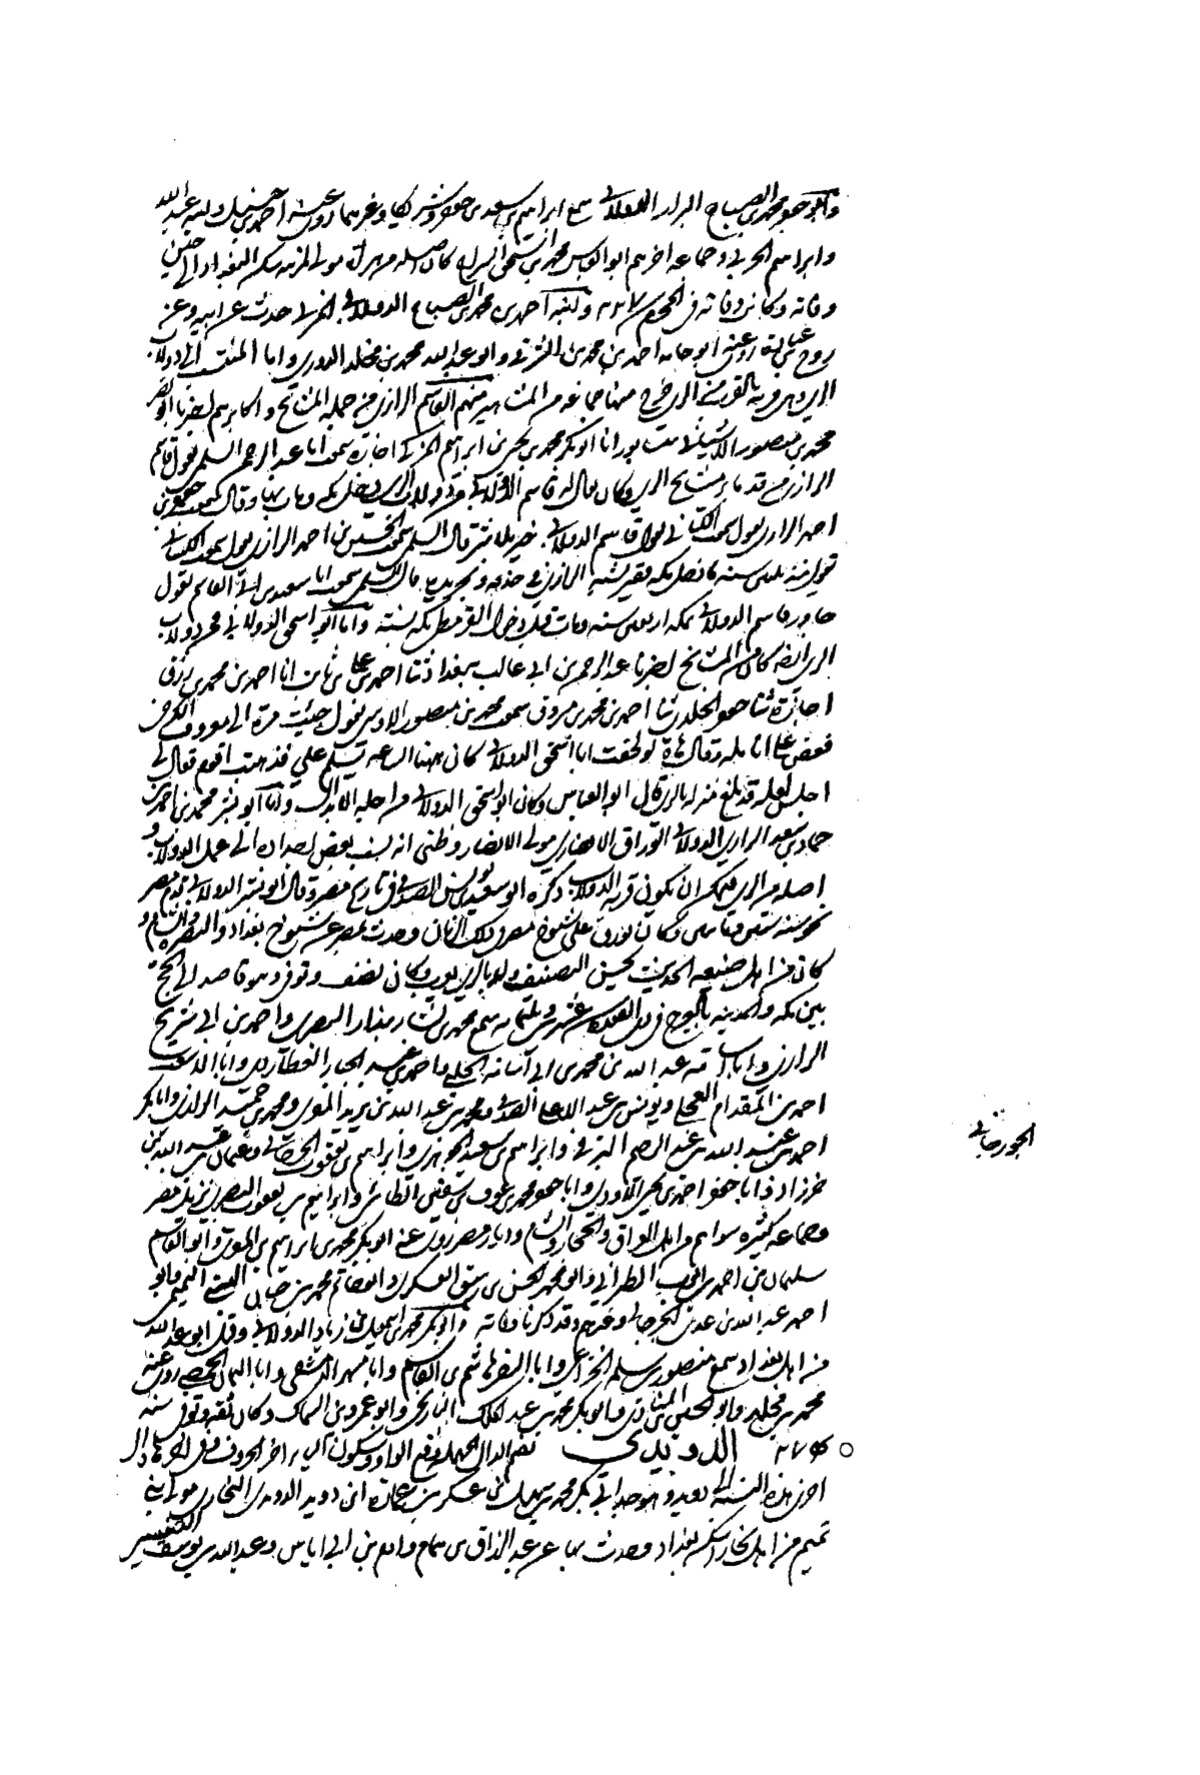 وابو جعفر محمد بن الصباح البزاز الدولابي سمع ابراهيم بن سعد وغيرهما روى عنه احمد بن حنبل وابنه عبد الله
وابراهيم الحربي وجماعة اخرهم ابو العباس محمد بن اسحق السراج كان اصله من هراة مولى لمزينة سكن بغداد الى حين
وفاته وكانت وفاته في المحرم ٢٢٧ وابنه احمد بن محمد بن الصباح الدولابي حدث عن ابيه وعن
روح بن عبادة روى عنه ابو حامد احمد بن محمد بن الشرقي وابو عبد الله محمد بن مخلد الدوري واما المنتسب الى دولاب
الري وهي قرية بالقرب من الري خرج منها جماعة من المشاهير منهم القاسم الرازي من جملة المشايخ واكابرهم اخبرنا ابو نصر
محمد بن منصور بنيسابور انا ابو بكر محمد بن يحيى بن ابراهيم المزكي اجازة سمعت ابا عبد الرحمن السلمي يقول قاسم
الرازي من قدماء مشايخ الري وكان يقال له قاسم الدولابي من دولاب الري دخل مكة ومات بها وقال سمعت جعفر بن
احمد الرازي يقول سمعت الكتاني يقول قاسم الدولابي قال السلمي سمعت الحسين بن احمد الرازي يقول سمعت الكتاني
يقول منذ ثلثين سنة ما دخل مكة فقير يشبه الرازي في صدقه وتجريده قال السلمي سمعت ابا سعيد بن ابي القاسم يقول
جاور قاسم الدولابي بمكة اربعين سنة ومات قبل دخول القرمطي مكة بسنة واما ابو اسحق الدولابي فمن دولاب
الري ايضا كان من المشايخ اخبرنا عبد الرحمن بن ابي غالب ببغداد ثنا احمد بن علي بن ثابت انا احمد بن محمد بن رزق
اجازة ثنا جعفر الخلدي ثنا احمد بن محمد بن مسروق سمعت محمد بن منصور الطوسي يقول جئت مرة الى معروف الكرخي
فعض على انامله وقال هاه لو لحقت ابا اسحق الدولابي كان ههنا الساعة يسلم علي فذهبت اقوم فقال لي
اجلس لعله قد بلغ منزله بالري قال ابو العباس وكان ابو اسحق الدولابي من اجلة الابدال واما ابو بشر محمد بن احمد بن
حماد بن سعد الرازي الدولابي الوراق الانصاري مولى الانصار وظني انه نسب بعض اجداده الى عمل الدولاب و
اصله من الري فيمكن ان يكون من قرية الدولاب ذكره ابو سعيد بن يونس الصدفي في تاريخ مصر وقال ابو بشر الدولابي قدم مصر
نحو سنة ستين ومائتين وكان يورق على شيوخ مصر في ذلك الزمان وحدث بمصر عن شيوخ بغداد والبصرة والشام و
كان من اهل صنعة الحديث يحسن التصنيف وله بالري يورق وكان يضعف وتوفي وهو قاصد الى الحج
بين مكة والمدينة بالعرج في ذي القعدة سنة عشر وثلثماية سمع محمد بن بشار بندار البصري واحمد بن ابي شريح
الرازي وابا اسامة عبد الله بن محمد بن ابي اسامة الحلبي واحمد بن عبد الجبار العطاردي وابا الاشعث
احمد بن المقدام العجلي ويونس بن عبد الاعلى الصدفي ومحمد بن عبد الله بن يزيد المقرئ ومحمد بن حميد الرازي وابا بكر
احمد بن عبد الله بن عبد الرحيم البرقي وابراهيم بن سعيد الجوهري وابراهيم بن يعقوب الجوزجاني وعثمان بن عبد الله بن
خرزاذ وابا جعفر احمد بن يحيى الاودي وابا جعفر محمد بن عوف بن سفين الطائي وابراهيم بن يعقوب البصري نزيل مصر
وجماعة كثيرة سواهم من اهل العراق والحجاز والشام وديار مصر روى عنه ابو بكر محمد بن ابراهيم بن المقرئ وابو القاسم
سليمان بن احمد بن ايوب الطبراني وابو محمد الحسن بن رشيق العسكري وابو حاتم محمد بن حبان البستي التميمي وابو
احمد عبد الله بن عدي الجرجاني وغيرهم وقد ذكرنا وفاته وابو بكر محمد بن اسمعيل بن زياد الدولابي وقيل ابو عبد الله
من اهل بغداد سمع منصور بن سلمة الخزاعي وابا النضر هاشم بن القاسم وابا مسهر الدمشقي وابا اليمان الحمصي روى عنه
محمد بن مخلد وابو الحسين بن المنادي وابو بكر محمد بن عبد الملك التاريخي وابو عمرو بن السماك وكان ثقة وتوفي سنة
٢٧٤ ○ الدويدي بضم الدال المهملة وفتح الواو وسكون الياء اخر الحروف وفي اخرها دال
اخرى هذه النسبة الى دويد وهو جد ابي بكر محمد بن سهل بن عسكر بن عمارة ابن دويد الدويدي البخاري مولى بني
تميم من اهل بخارا سكن بغداد وحدث بها عن عبد الرزاق بن همام وادم بن ابي اياس وعبد الله بن يوسف التنيسي
الجوزجاني